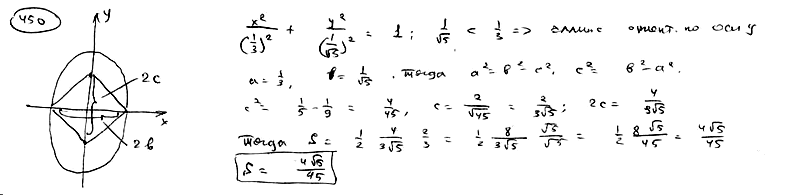 450
y
x
2c
2b
x²/(1/3)² + y²/(1/√5)² = 1; 1/√5 < 1/3 => эллипс ориент. по оси y
a = 1/3, b = 1/√5. Тогда a² = b² - c², c² = b² - a².
c² = 1/5 - 1/9 = 4/45, c = 2/√45 = 2/3√5; 2c = 4/3√5
Тогда S = 1/2 4/3√5 2/3 = 1/2 8/3√5 √5/√5 = 1/2 8√5/45 = 4√5/45
S = 4√5/45